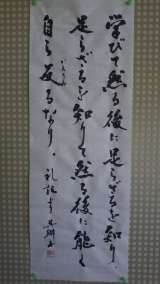 学びて然る後に足らざるを知り、
足らざるを知りて然る後に能く
自ら反るなり。礼記